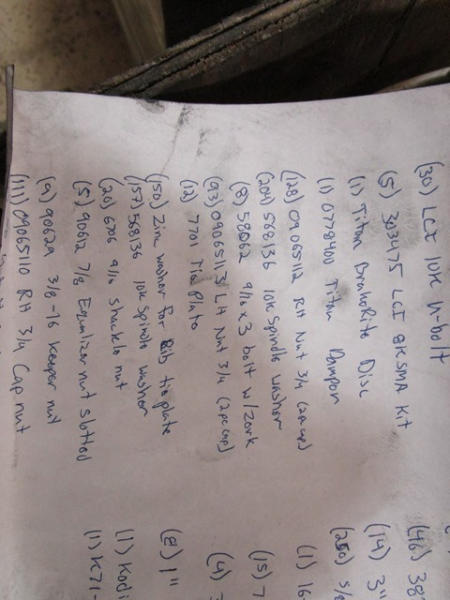 (30) LCI 10K u-bolt
(5) 303475 LCI 8K SMA Kit
(1) Titan BrakeRite Disc
(1) 0778400 Titan Damper
(128) 09065112 RH Nut 3/4 (2pc cap)
(204) 568136 10K Spindle washer
(8) 58062 9/16 x 3 bolt w/ Zerk
(93) 09065113 LH Nut 3/4 (2pc cap)
(12) 7701 Tie plate
(150) Zinc washer for Rib tie plate
(157) 568136 10K Spindle washer
(20) 6706 9/16 shackle nut
(5) 90612 7/8 Equalizer nut slotted
(9) 90629 3/8-16 Keeper nut
(111) 09065110 RH 3/4 Cap nut
(46) 38
(14) 3"
(250) 5/
(1) 16-
(15) 7
(4)
(8) 1"
(1) Kodi
(1) K71-